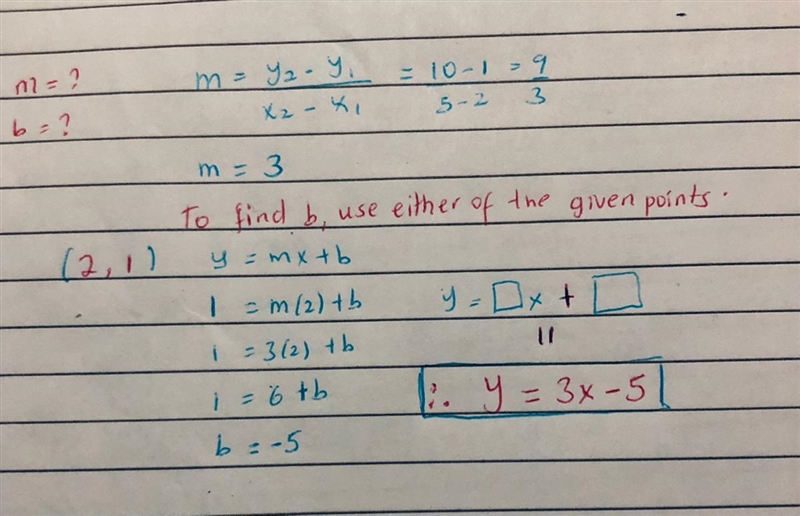 m = ?
b = ?
m = y₂ - y₁ / x₂ - x₁ = 10 - 1 / 5 - 2 = 9 / 3
m = 3
To find b, use either of the given points.
(2, 1)
y = mx + b
1 = m(2) + b
1 = 3(2) + b
1 = 6 + b
b = -5
y = □x + □
11
∴ y = 3x - 5